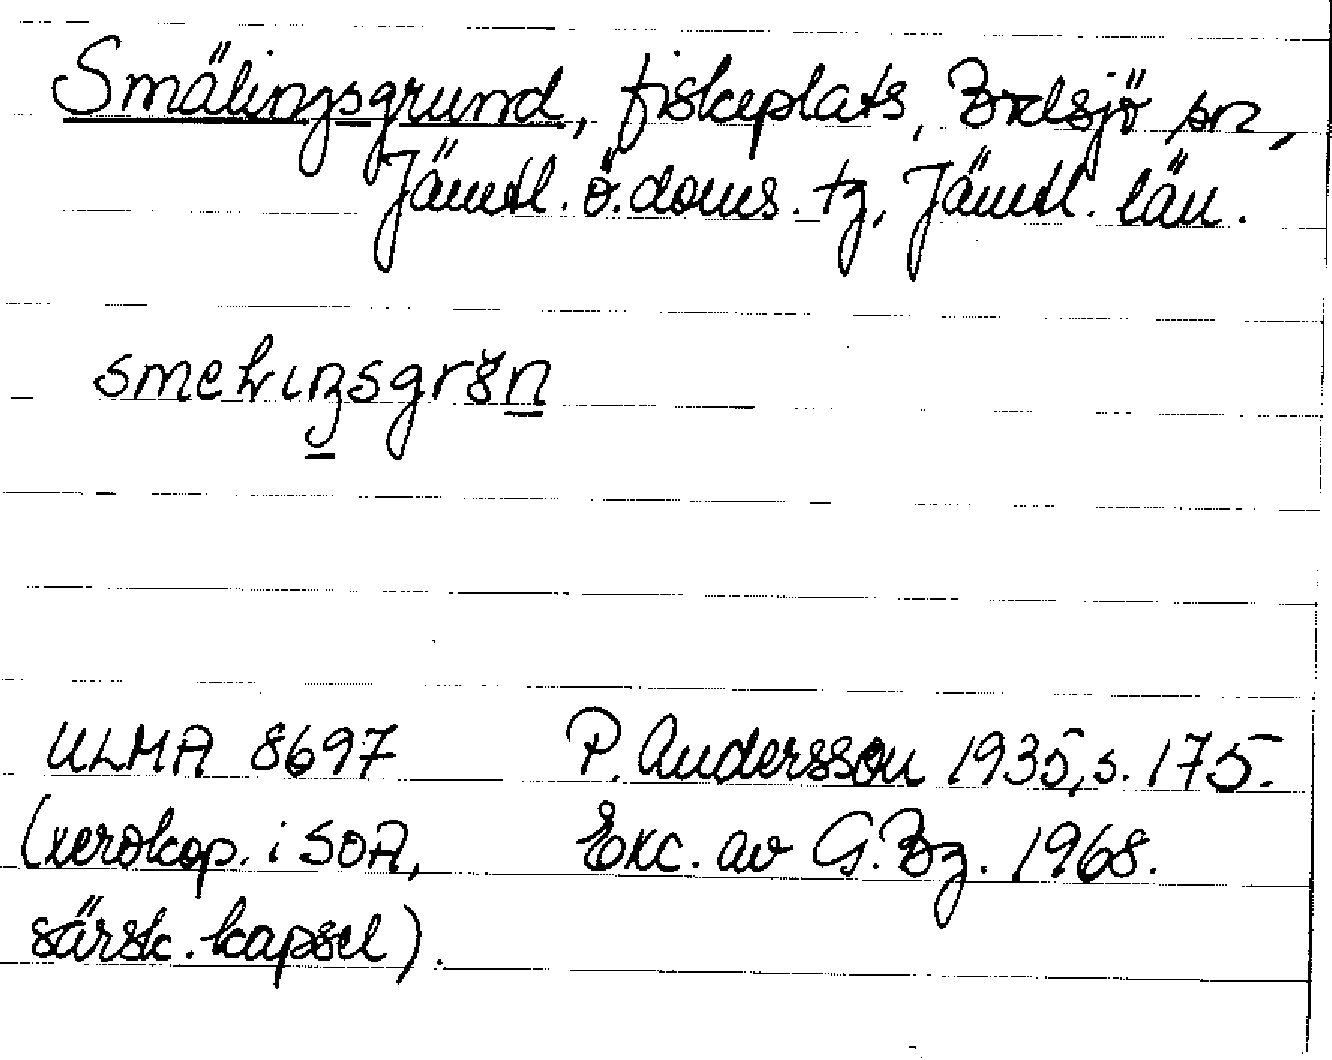 Smälingsgrund, fiskeplats, Bodsjö sn,
Jämtl. ö. doms. tg, Jämtl. län.
ULMA 8697 P. Andersson 1935, s. 175.
(xerokop. i SOA, Exc. av G. Bg. 1968.
särsk. kapsel).